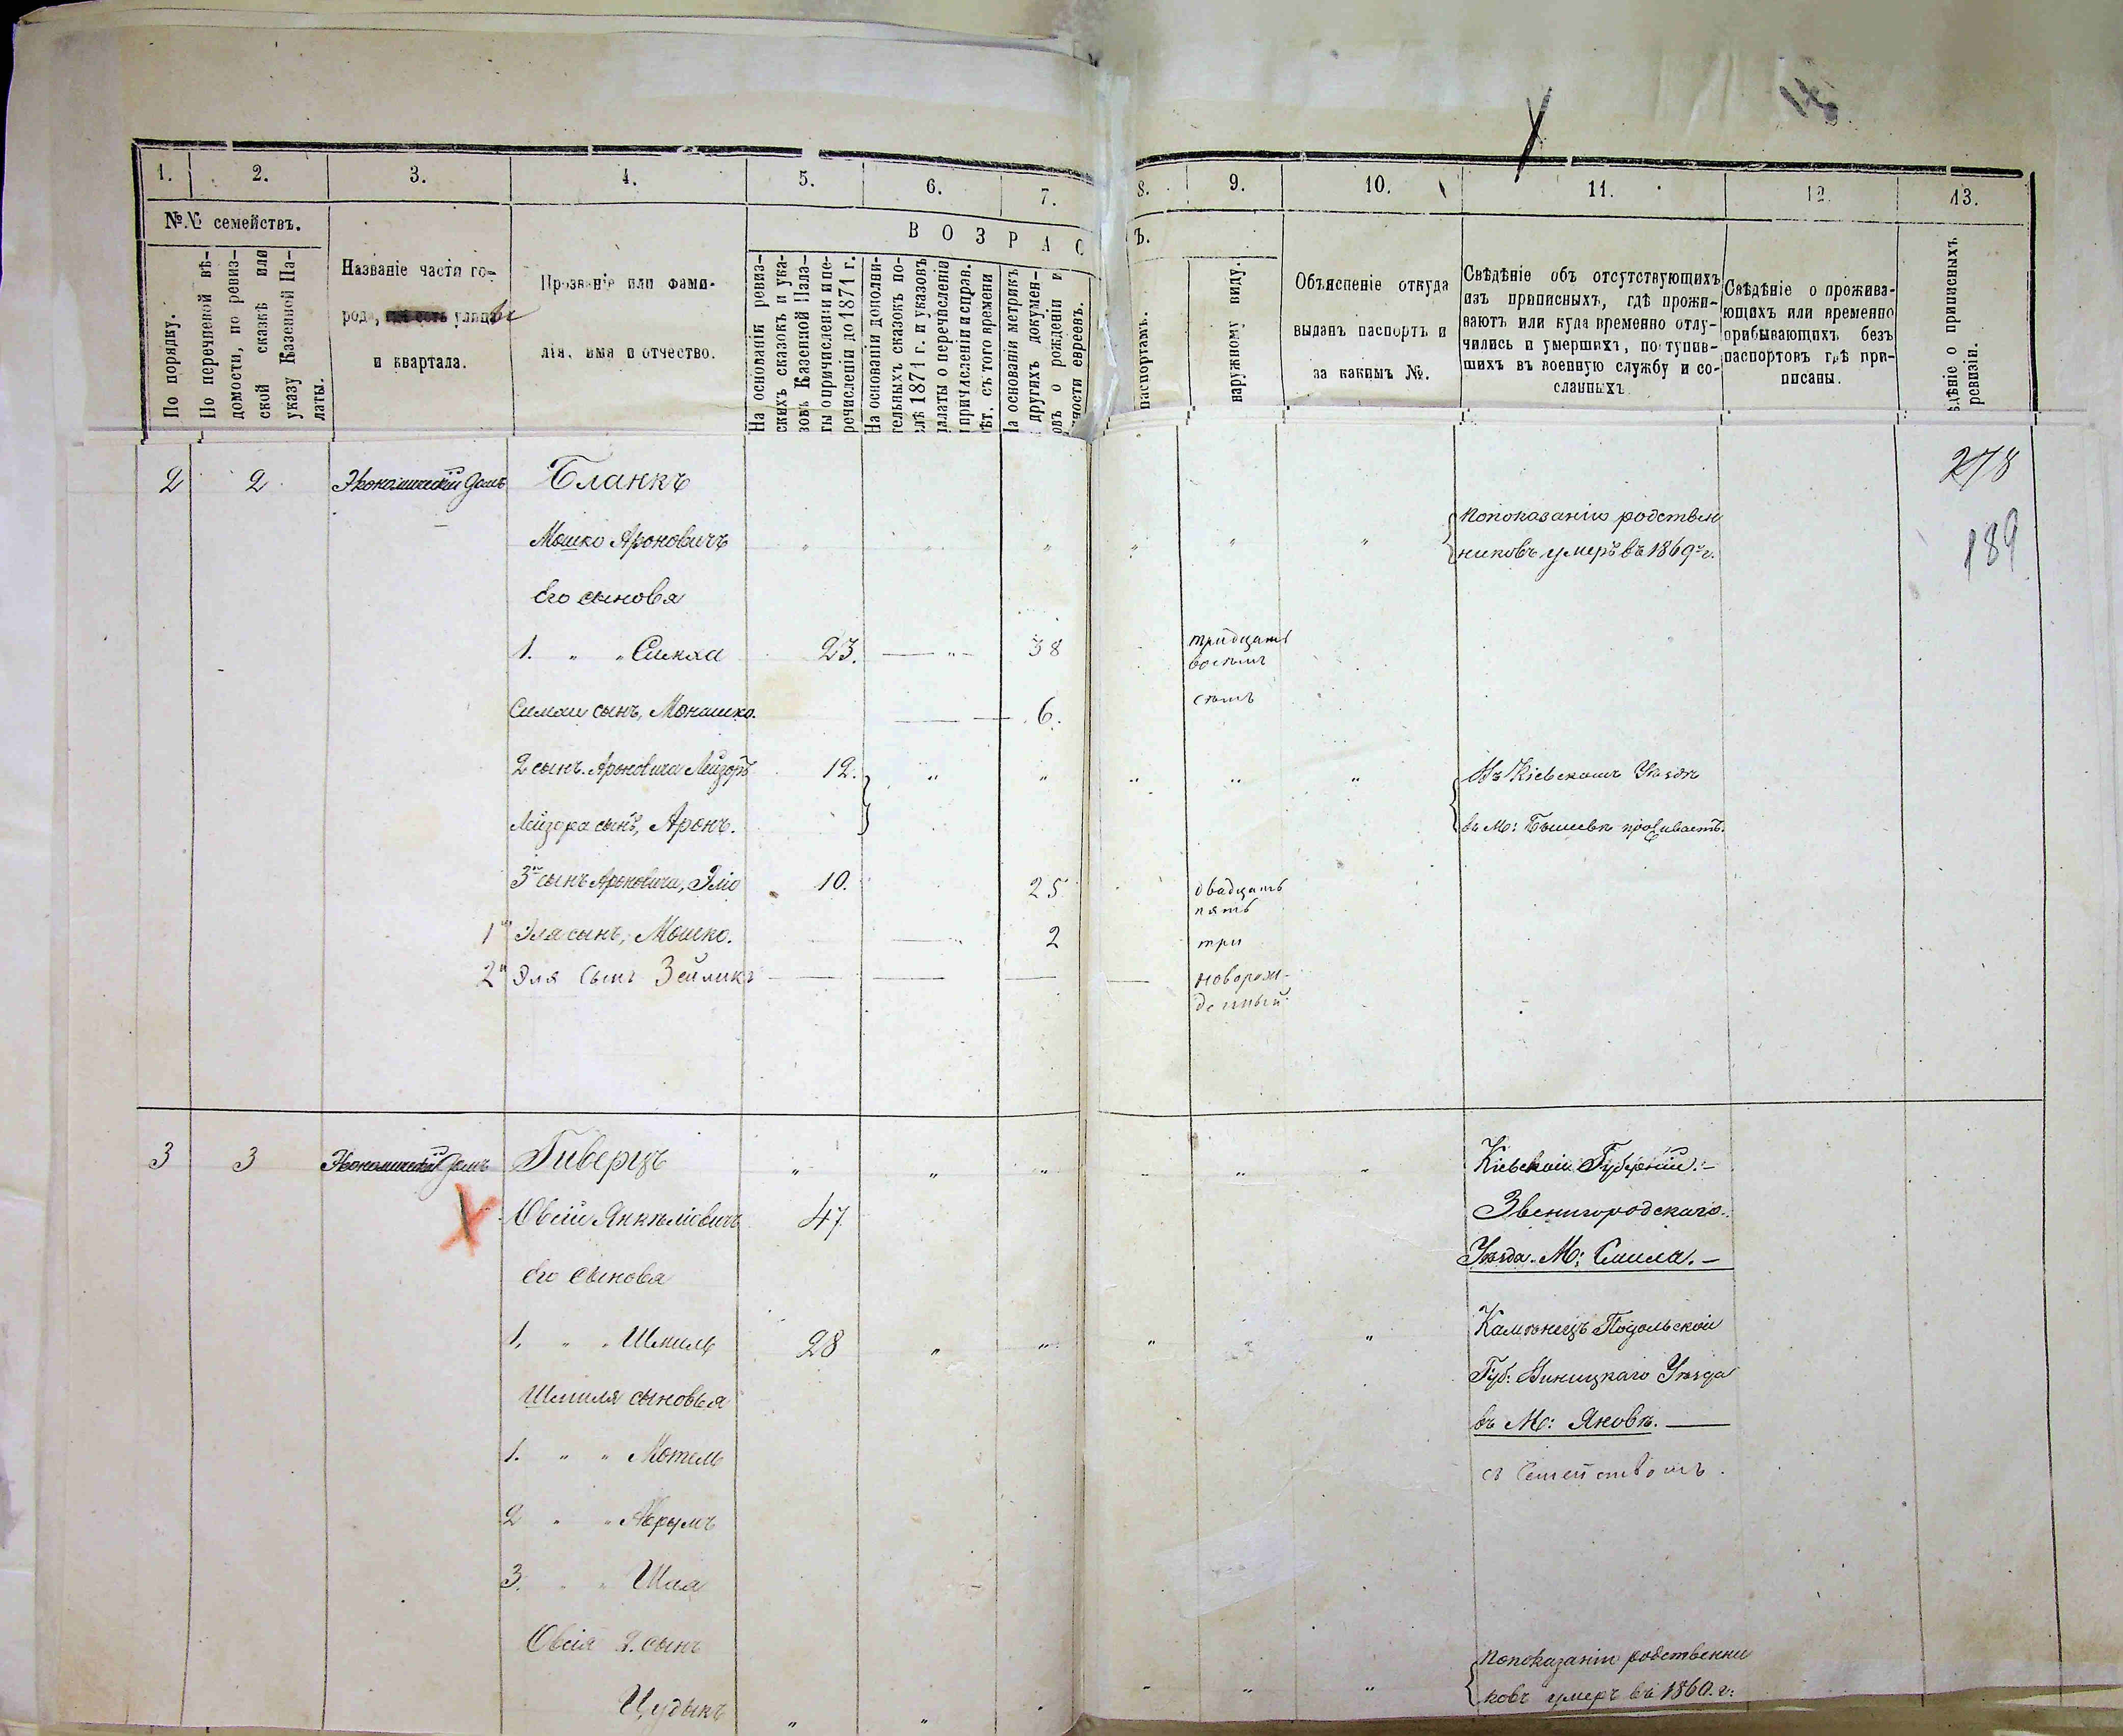 1. 2. 3. 4. 5. 6. 7. 8. 9. 10. 11. 12. 13.
№№ семействъ.
По порядку.
По перечневой вѣ-
домости, по ревиз-
ской сказкѣ или
указу Казенной Па-
латы.
Названіе части го-
рода, улицы
и квартала.
Прозваніе или фами-
лія, имя и отчество.
ВОЗРАС
Ъ.
На основаніи ревиз-
скихъ сказокъ и ука-
зовъ Казенной Пала-
ты о причисленіи и пе-
речисленіи до 1871 г.
На основаніи дополни-
тельныхъ сказокъ по-
слѣ 1871 г. и указовъ
палаты о перечисленіи
и причисленіи исправ.
лѣт. съ того времени
На основаніи метрикъ
и другихъ докумен-
овъ о рожденіи и
ности евреевъ.
паспортамъ.
наружному виду.
Объясненіе откуда
выданъ паспортъ и
за какимъ №.
Свѣдѣніе объ отсутствующихъ
изъ приписныхъ, гдѣ прожи-
ваютъ или куда временно отлу-
чились и умершихъ, поступив-
шихъ въ военную службу и со-
сланныхъ.
Свѣдѣніе о прожива-
ющихъ или временно
прибывающихъ безъ
паспортовъ гдѣ при-
писаны.
ѣдѣніе о приписныхъ
ревизіи.
2 2 Экономическій домъ Бланкъ 278
Мошко Ароновичъ " " " " " " По показанію родствен
никовъ умеръ въ 1869 г. 189
Его сыновья
1. " " Симха 23. — " — 38 тридцать
восемь
Симхи сынъ, Монашко. — — 6. семь
2 сынъ. Ароновича Лейзоръ 12. " " " " " Въ Кіевскомъ Уѣздѣ
Лейзора сынъ, Аронъ. въ М: Бышевѣ проживаетъ.
3й сынъ Ароновича, Эліо 10. 25 двадцать
пять
1й Эля сынъ, Мошко. — " 2 три
2й Эля сынъ Зейликъ — — — — новорож-
денный
3 3 Экономическій домъ Гиверцъ " " " " " " Кіевской Губерніи. –
Овсій Янкеліовичъ 47 Звенигородскаго
Уѣзда. М: Смила. –
Его сынова
1. " " Шмиль 28 " " " " " Каменецъ Подольской
Шмиля сыновья Губ: Виницкаго Уѣзда
въ М: Яновѣ. —
1. " " Мотель
съ Семействомъ.
2 " " Абрумъ
3. " " Шая
Овсія 2. сынъ
Цудыкъ " " " " " " По показанію родственни
ковъ умеръ въ 1860. г: